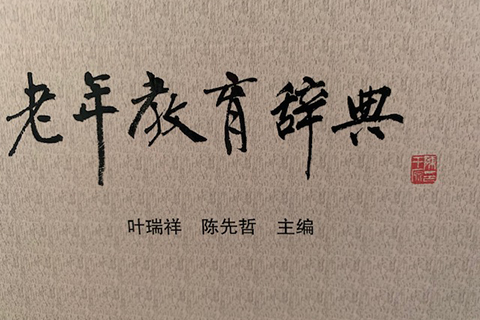 老年教育辞典
叶瑞祥 陈先哲 主编